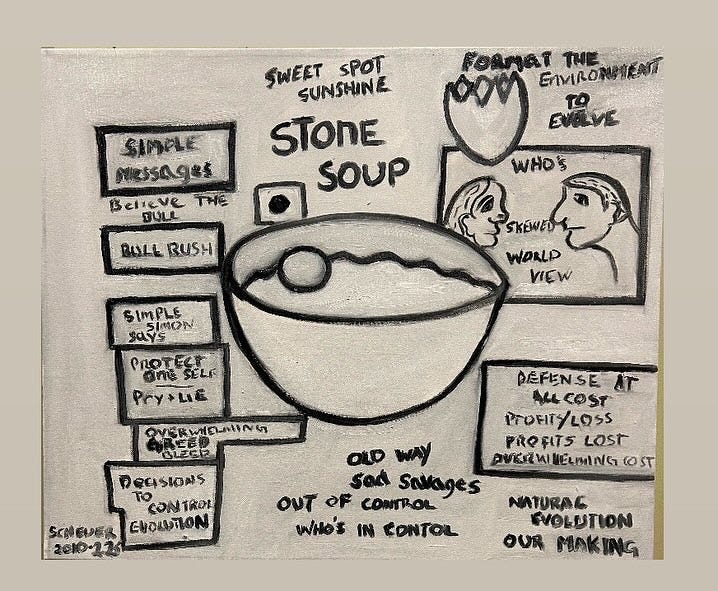 SWEET SPOT
SUNSHINE
STONE
SOUP
FORMAT THE
ENVIRONMENT
TO
EVOLVE
SIMPLE
MessageS
Believe THE
BULL
BULL RUSH
SIMPLE
SIMON
Says
PROTECT
ONE SELF
Pry + LIE
OVERWHELMING
GREED
BLEED
DecISIONS
TO
CONTROL
EVOLUTION
SCHEUER
WHO'S
SKEWED
WORLD
VIEW
DEFENSE AT
ALL COST
PROFITS/LOSS
PROFITS LOST
OVERWHELMING COST
OLD WAY
Sad Savages
OUT OF CONTROL
WHO'S IN CONTOL
NATURAL
EVOLUTION
OUR MAKING